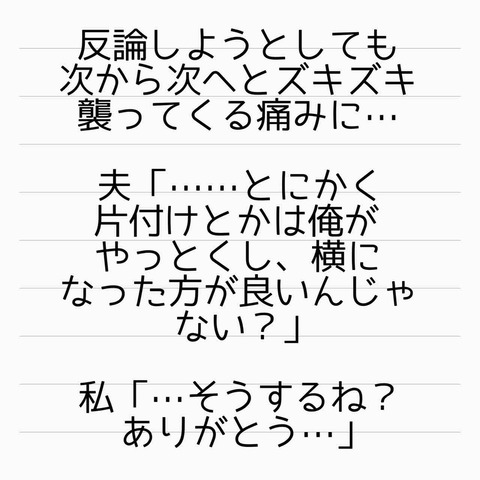 反論しようとしても
次から次へとズキズキ
襲ってくる痛みに…
夫「……とにかく
片付けとかは俺が
やっとくし、横に
なった方が良いんじゃ
ない？」
私「…そうするね？
ありがとう…」